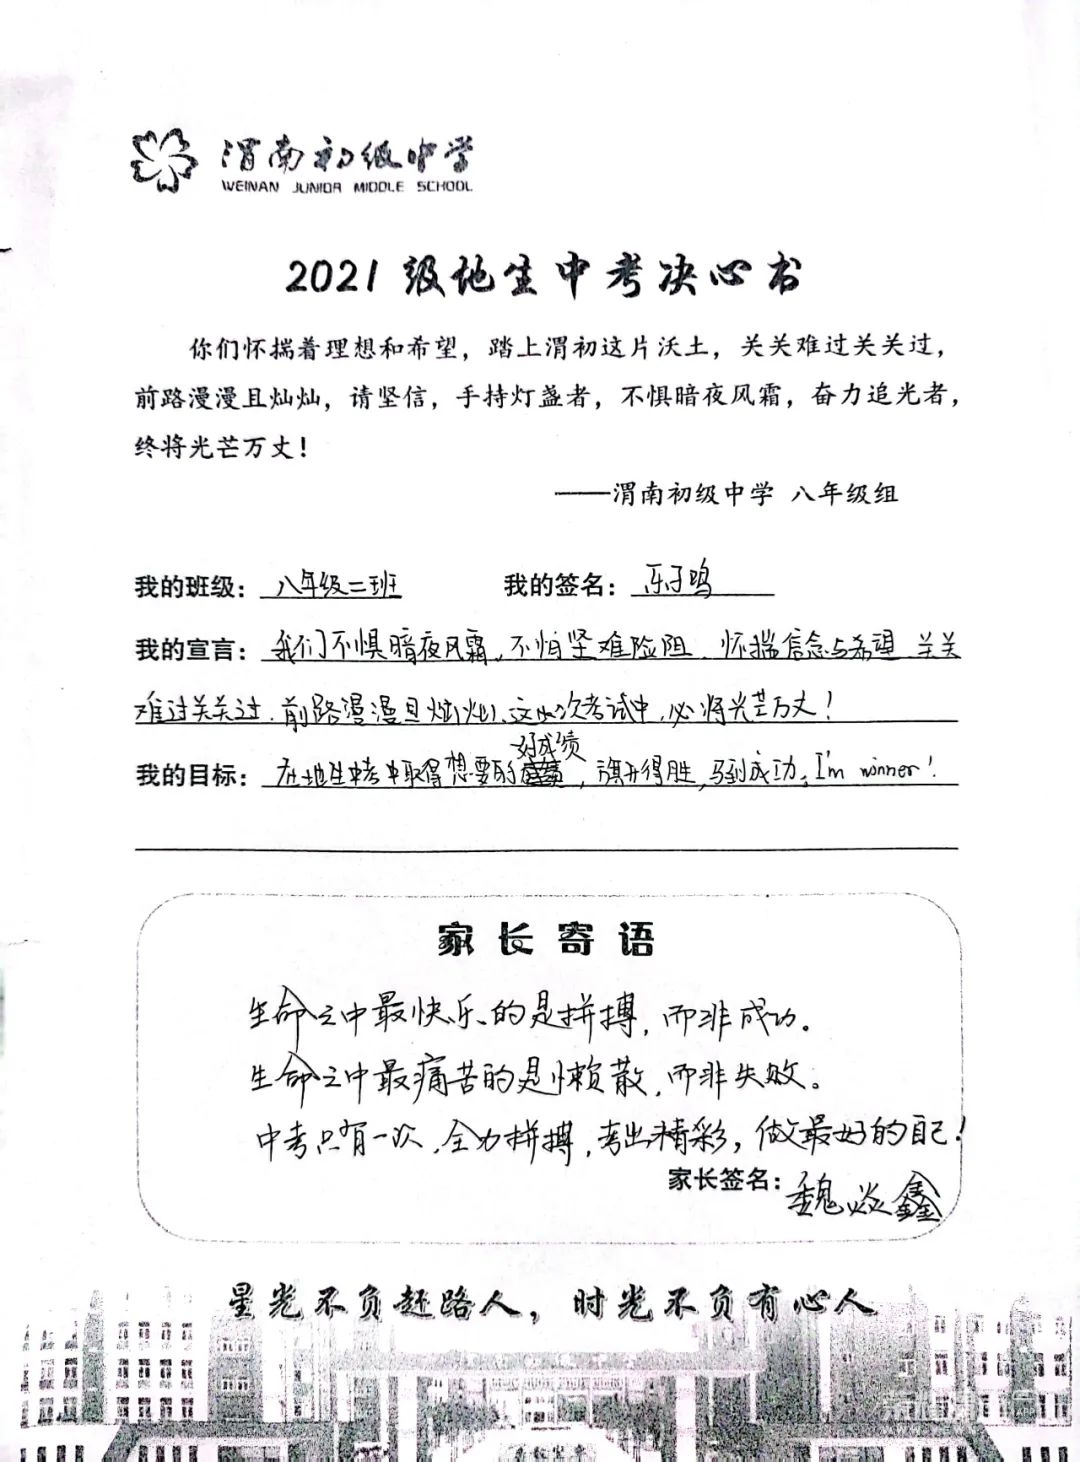 渭南初级中学
WEINAN JUNIOR MIDDLE SCHOOL
2021级地生中考决心书
你们怀揣着理想和希望，踏上渭初这片沃土，关关难过关关过，
前路漫漫且灿灿，请坚信，手持灯盏者，不惧暗夜风霜，奋力追光者，
终将光芒万丈！
——渭南初级中学 八年级组
我的班级：八年级二班 我的签名：乐子鸣
我的宣言：我们不惧暗夜风霜，不怕坚难险阻，怀揣信念与希望，关关
难过关关过，前路漫漫且灿灿，这次考试中，必将光芒万丈！
好成绩
我的目标：在地生中考中取得想要的，旗开得胜，马到成功，I'm winner！
家长寄语
生命之中最快乐的是拼搏，而非成功。
生命之中最痛苦的是懒散，而非失败。
中考只有一次，全力拼搏，考出精彩，做最好的自己！
家长签名：魏焱鑫
星光不负赶路人，时光不负有心人